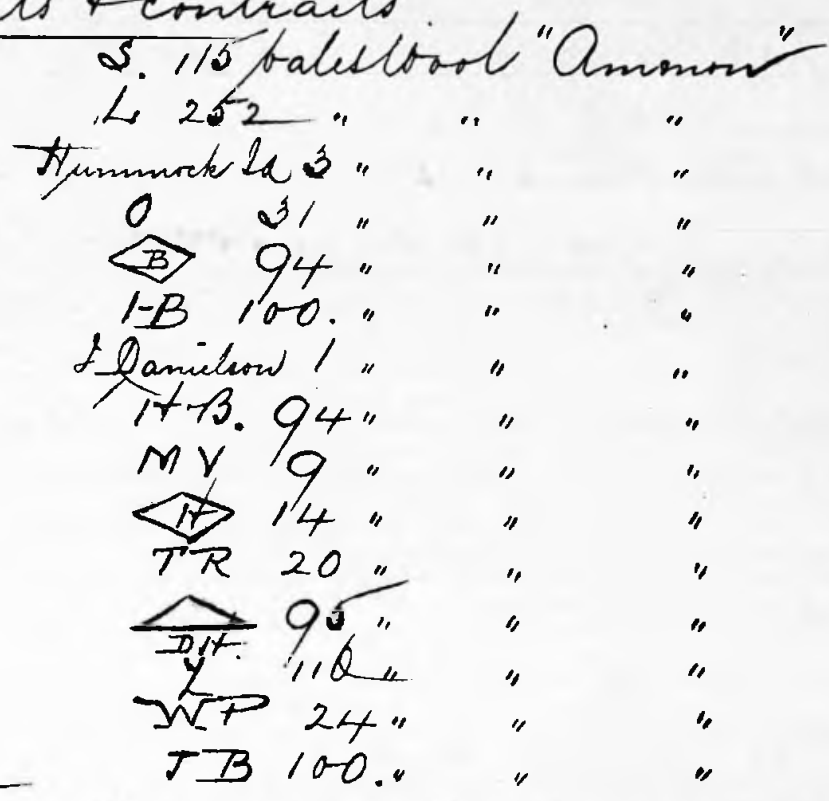 ts & contracts
S. 115 bales Wool "Ammon"
L 252 " " "
Hummock Id 3 " " "
O 31 " " "
B 94 " " "
H-B 100. " " "
J Danielson 1 " " "
H-B. 94 " " "
M V 9 " " "
H 14 " " "
T R 20 " " "
95 " " "
DH.
110 " " "
WP 24 " " "
J B 100. " " "